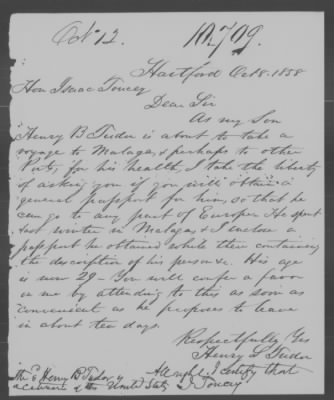 Oct 12. 10,709.
Hartford Oct 8. 1858
Hon Isaac Toucey
Dear Sir
As my Son
Henry B Tudor is about to take a
voyage to Malaga, & perhaps to other
Ports, for his health, I take the liberty
of asking you if you will obtain a
general passport for him, so that he
can go to any part of Europe. He spent
last winter in Malaga & I enclose a
passport he obtained while there containing
the discription of his person &c. His age
is now 29 - You will confer a favor
on me by attending to this as soon as
convenient as he proposes to leave
in about ten days.
Respectfully Yrs
Henry S Tudor
All right. I certify that
Mr Henry B Tudor is
a citizen of the United States I Toucey